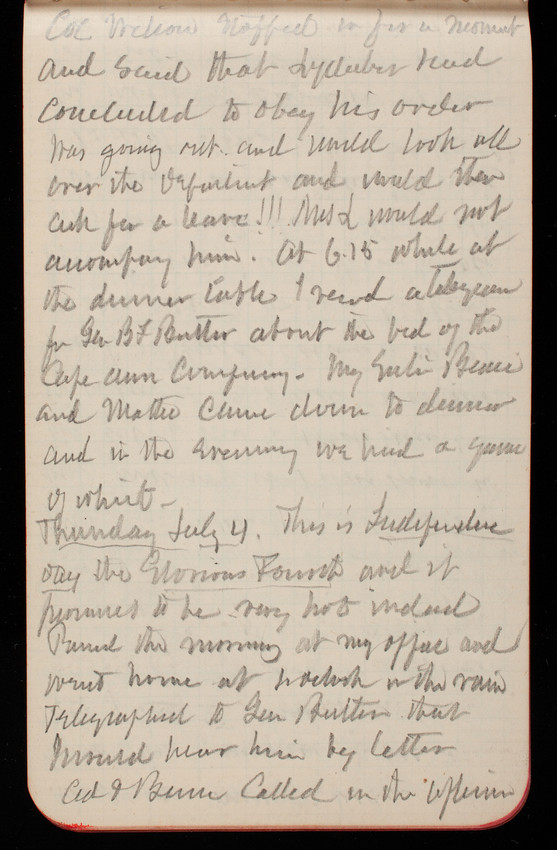 Col Wilson stopped in for a moment
and said that Lydecker had
concluded to obey his order
was going out and would look all
over the Department and would then
ask for a leave!!! Mrs L would not
accompany him. At 6.15 while at
the dinner table I recvd a telegram
fr Gen BF Butler about the bed of the
Cape Ann Company. My Girls Bessie
and Mattie came down to dinner
and in the evening we had a game
of whist -
Thursday July 4. This is Independence
day the Glorious Fourth and it
promises to be very hot indeed
Passed the morning at my office and
went home at in the rain
Telegraphed to Gen Butler that
I would hear him by letter
Called in the